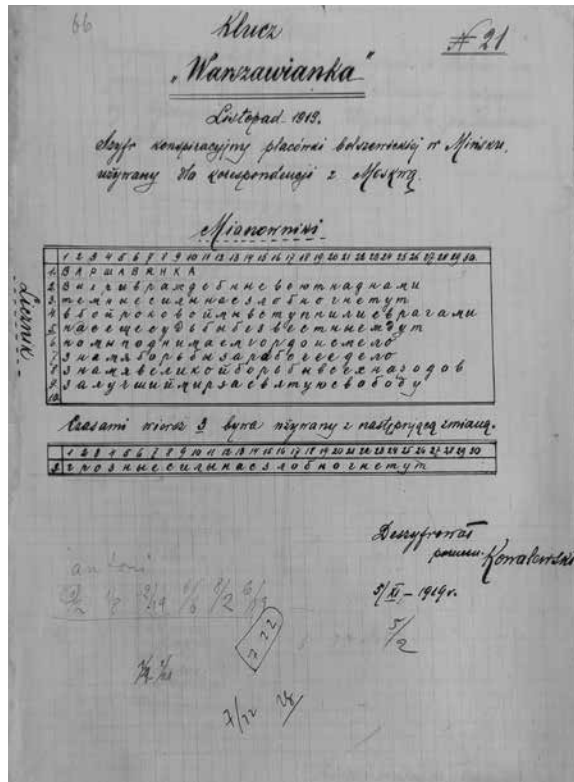 66
Klucz
№ 21
„Warszawianka"
Listopad 1919.
Szyfr konspiracyjny placówki bolszewickiej w Mińsku,
używany dla korespondencji z Moskwą.
Mianowniki
Liczniki
1 2 3 4 5 6 7 8 9 10 11 12 13 14 15 16 17 18 19 20 21 22 23 24 25 26 27 28 29 30
1. В А Р Ш А В Я Н К А
2. В и х р ы в р а ж д е б н ы е в е ю т н а д н а м и
3. т е м н ы е с и л ы н а с з л о б н о г н е т у т
4. в б о й р о к о в о й м ы в с т у п и л и с в р а г а м и
5. н а с е щ е с у д ь б ы б е з в е с т н ы е ж д у т
6. н о м ы п о д н и м а е м г о р д о и с м е л о
7. з н а м я б о р ь б ы з а р а б о ч е е д е л о
8. з н а м я в е л и к о й б о р ь б ы в с е х н а р о д о в
9. з а л у ч ш и й м и р з а с в я т у ю с в о б о д у
10.
Czasami wiersz 3 bywa używany z następującą zmianą.
1 2 3 4 5 6 7 8 9 10 11 12 13 14 15 16 17 18 19 20 21 22 23 24 25 26 27 28 29 30
3. г р о з н ы е с и л ы н а с з л о б н о г н е т у т
Deszyfrował
porucz. Kowalewski
5/XI – 1919 r.
5/2
7 22
7/22